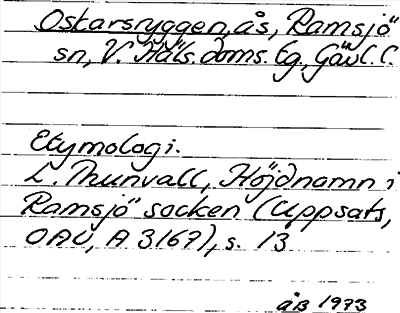 Oskarsryggen, ås, Ramsjö
sn, V. Häls. doms. tg, Gävl. l.
Etymologi.
L. Thunvall, Höjdnamn i
Ramsjö socken (Uppsats,
OAU, A 3167), s. 13
åB 1973